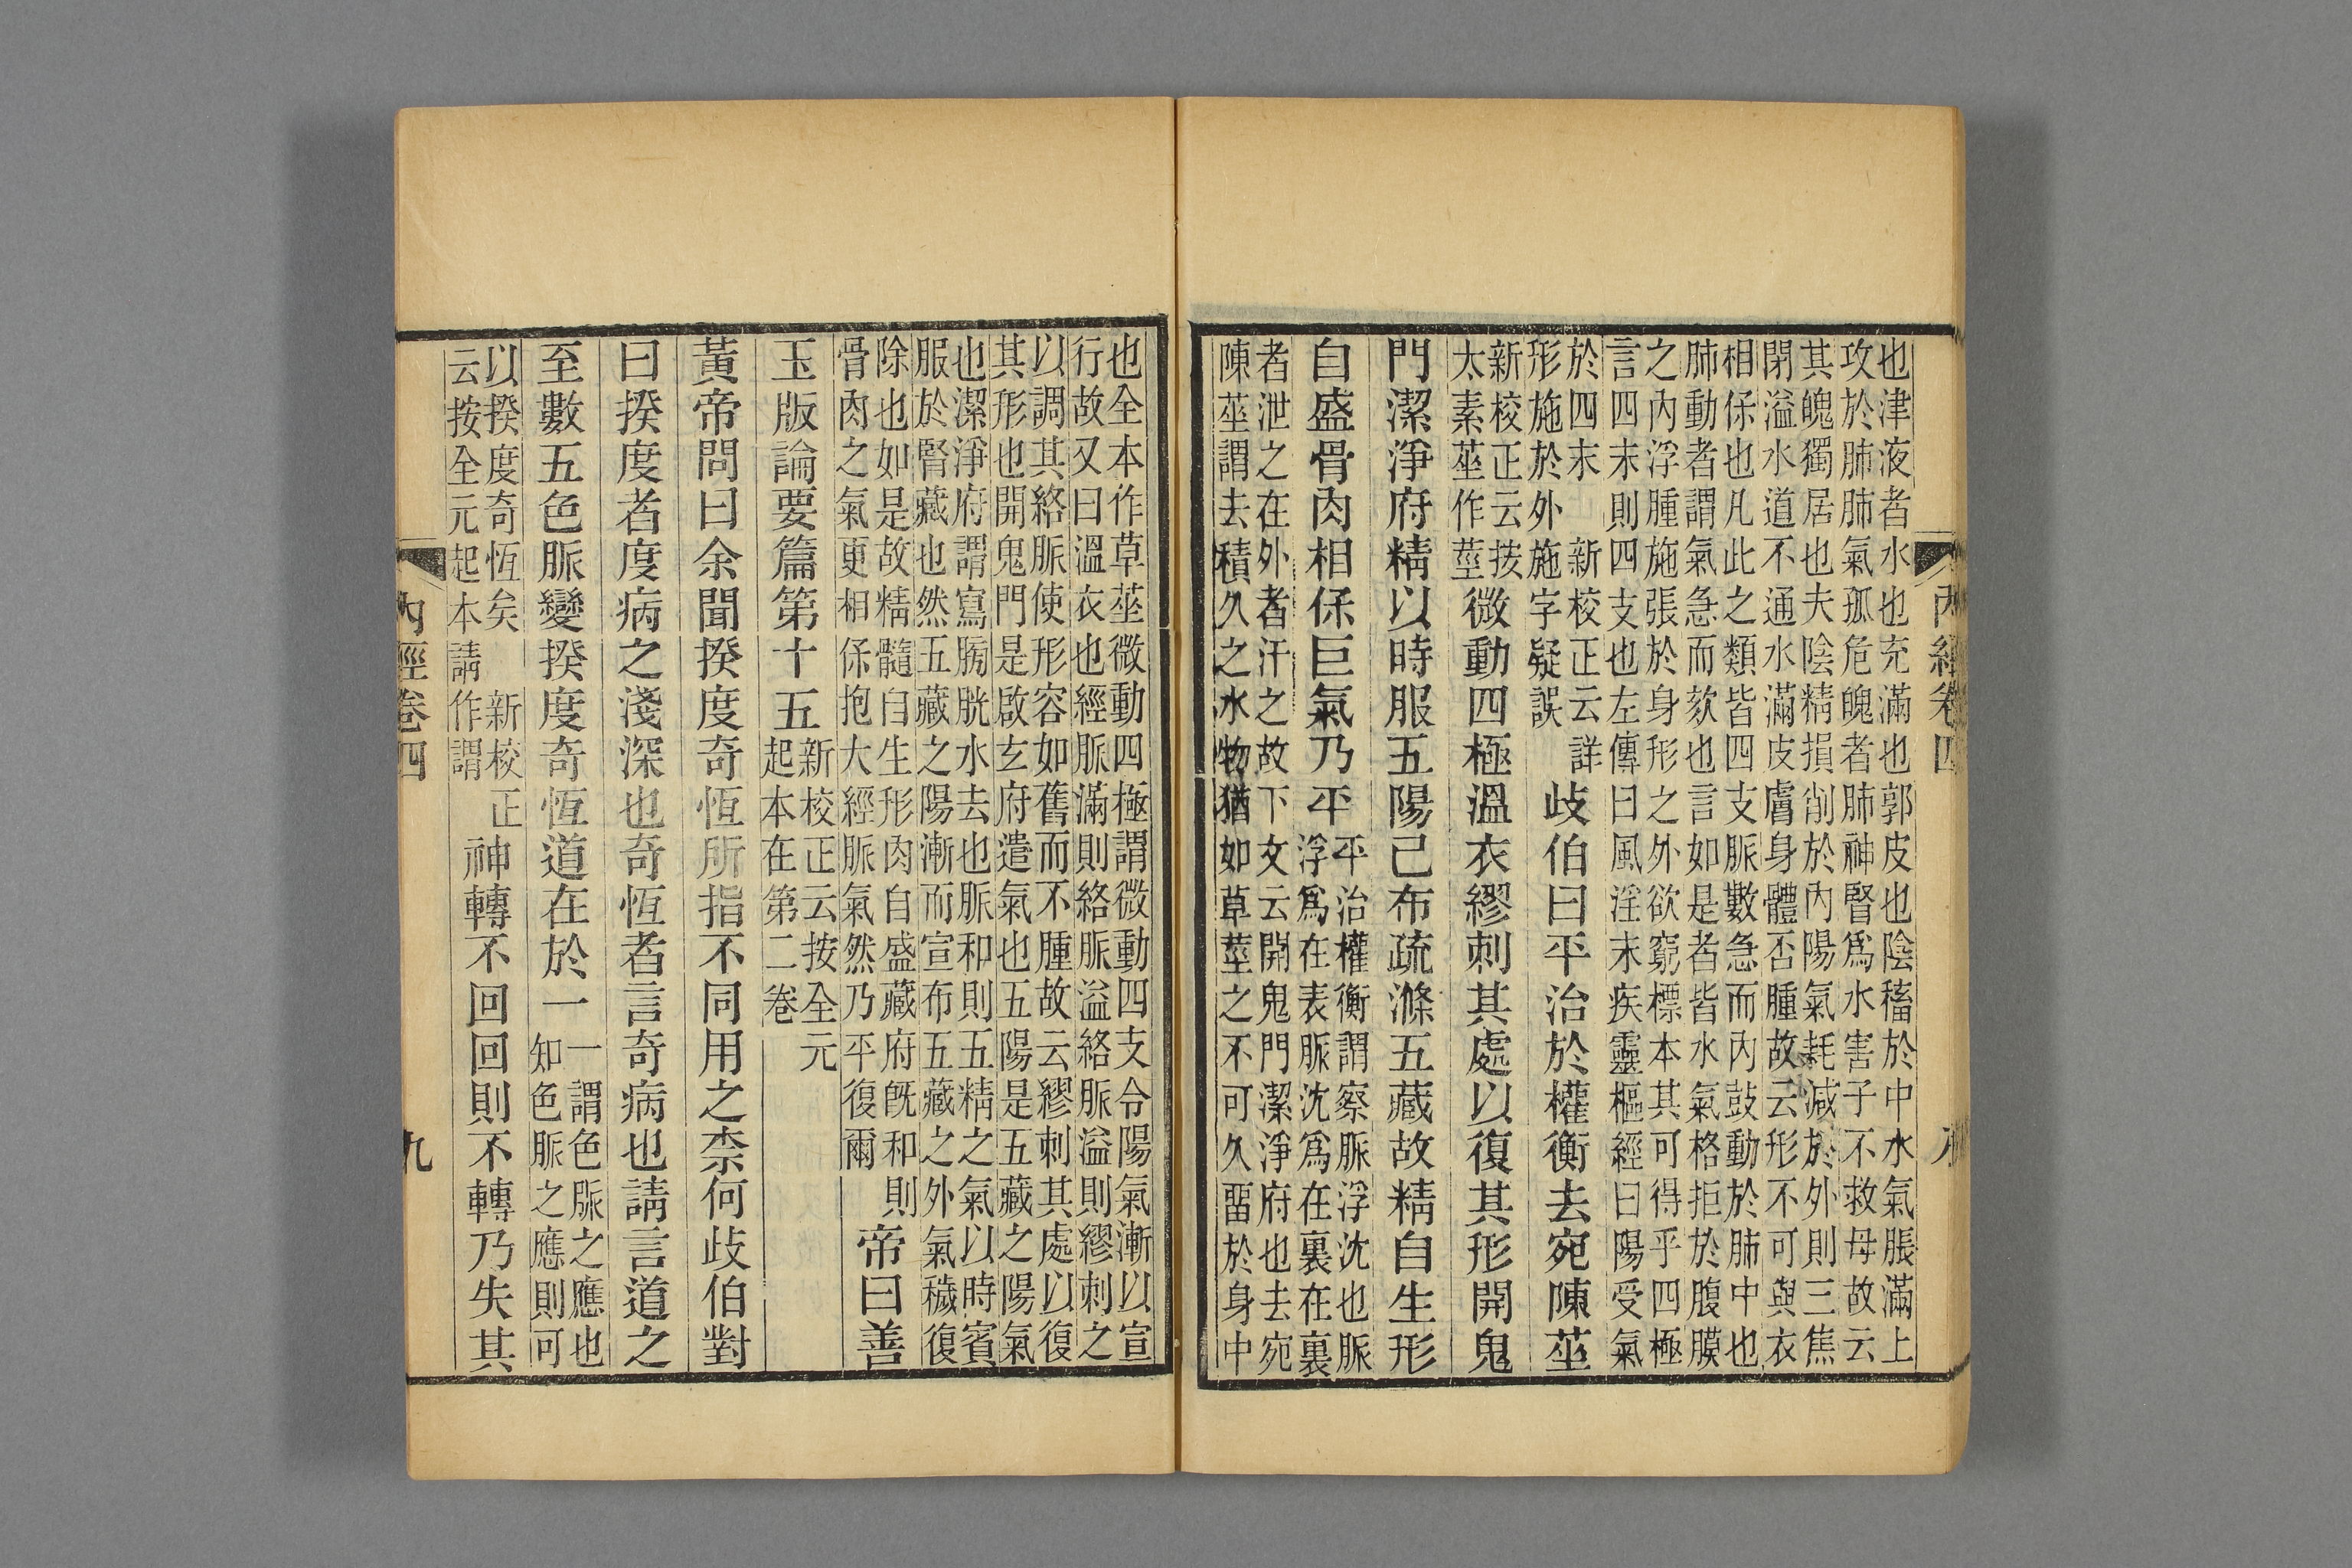 內經卷四
也津液者水也充滿也郭皮也陰稸於中水氣脹滿上
攻於肺肺氣孤危魄者肺神腎爲水害子不救母故云
其魄獨居也夫陰精損削於內陽氣耗減於外則三焦
閉溢水道不通水滿皮膚身體否腫故云形不可與衣
相保也凡此之類皆四支脈數急而內鼓動於肺中也
肺動者謂氣急而欬也言如是者皆水氣格拒於腹膜
之內浮腫施張於身形之外欲窮標本其可得乎四極
言四末則四支也左傳曰風淫末疾靈樞經曰陽受氣
於四末 新校正云詳
形施於外施字疑誤
歧伯曰平治於權衡去宛陳莝
新校正云按
太素莝作莖
微動四極溫衣繆刺其處以復其形開鬼
門潔淨府精以時服五陽已布疏滌五藏故精自生形
自盛骨肉相保巨氣乃平
平治權衡謂察脈浮沈也脈
浮爲在表脈沈爲在裏在裏
者泄之在外者汗之故下文云開鬼門潔淨府也去宛
陳莝謂去積久之水物猶如草莖之不可久留於身中
也全本作草莝微動四極謂微動四支令陽氣漸以宣
行故又曰溫衣也經脈滿則絡脈溢絡脈溢則繆刺之
以調其絡脈使形容如舊而不腫故云繆刺其處以復
其形也開鬼門是啟玄府遣氣也五陽是五藏之陽氣
也潔淨府謂寫膀胱水去也脈和則五精之氣以時賓
服於腎藏也然五藏之陽漸而宣布五藏之外氣穢復
除也如是故精髓自生形肉自盛藏府旣和則
骨肉之氣更相保抱大經脈氣然乃平復爾
帝曰善
玉版論要篇第十五
新校正云按全元
起本在第二卷
黃帝問曰余聞揆度奇恆所指不同用之柰何歧伯對
曰揆度者度病之淺深也奇恆者言奇病也請言道之
至數五色脈變揆度奇恆道在於一
一謂色脈之應也
知色脈之應則可
以揆度奇恆矣 新校正
云按全元起本請作謂
神轉不回回則不轉乃失其
內經卷四
九